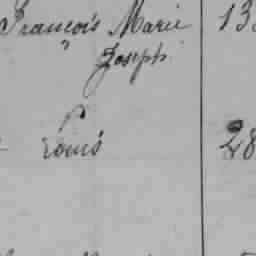 François Marie 13
Joseph
Louis 28